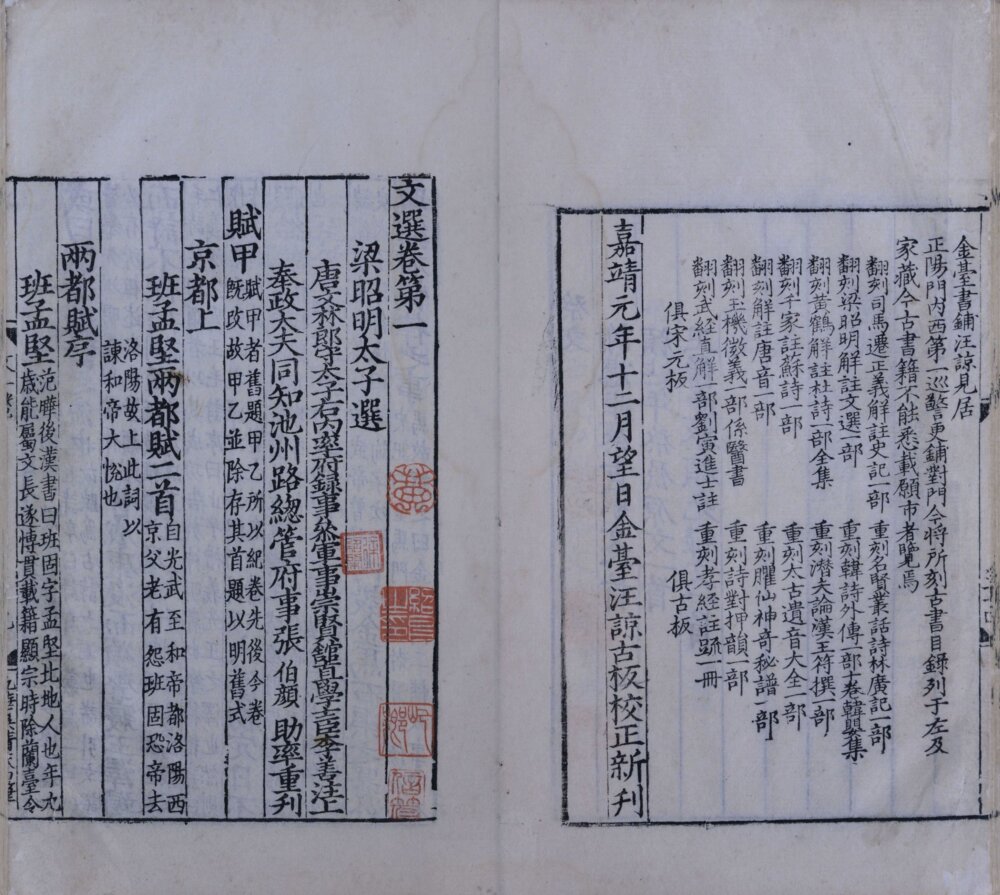 金臺書鋪汪諒見居
正陽門內西第一巡警更鋪對門今將所刻古書目錄列于左及
家藏今古書籍不能悉載願市者覽焉
翻刻司馬遷正義解註史記一部
重刻名賢叢話詩林廣記一部
翻刻梁昭明解註文選一部
重刻韓詩外傳一部十卷韓嬰集
翻刻黃鶴解註杜詩一部全集
重刻潛夫論漢王符撰一部
翻刻千家註蘇詩一部
重刻太古遺音大全一部
翻刻解註唐音一部
重刻臞仙神奇秘譜一部
翻刻玉機微義一部係醫書
重刻詩對押韻一部
翻刻武經直解一部劉寅進士註
重刻孝經註疏一冊
俱宋元板
俱古板
嘉靖元年十二月望日金臺汪諒古板校正新刊
文選卷第一
梁昭明太子選
唐文林郎守太子右內率府錄事參軍事崇賢館直學士臣李善注上
奉政大夫同知池州路總管府事張伯顏助率重刊
賦甲
賦甲者舊題甲乙所以紀卷先後今卷
旣改故甲乙並除存其首題以明舊式
京都上
班孟堅兩都賦二首
自光武至和帝都洛陽西
京父老有怨班固恐帝去
洛陽故上此詞以
諫和帝大悅也
兩都賦序
班孟堅
范曄後漢書曰班固字孟堅北地人也年九
歲能屬文長遂博貫載籍顯宗時除蘭臺令